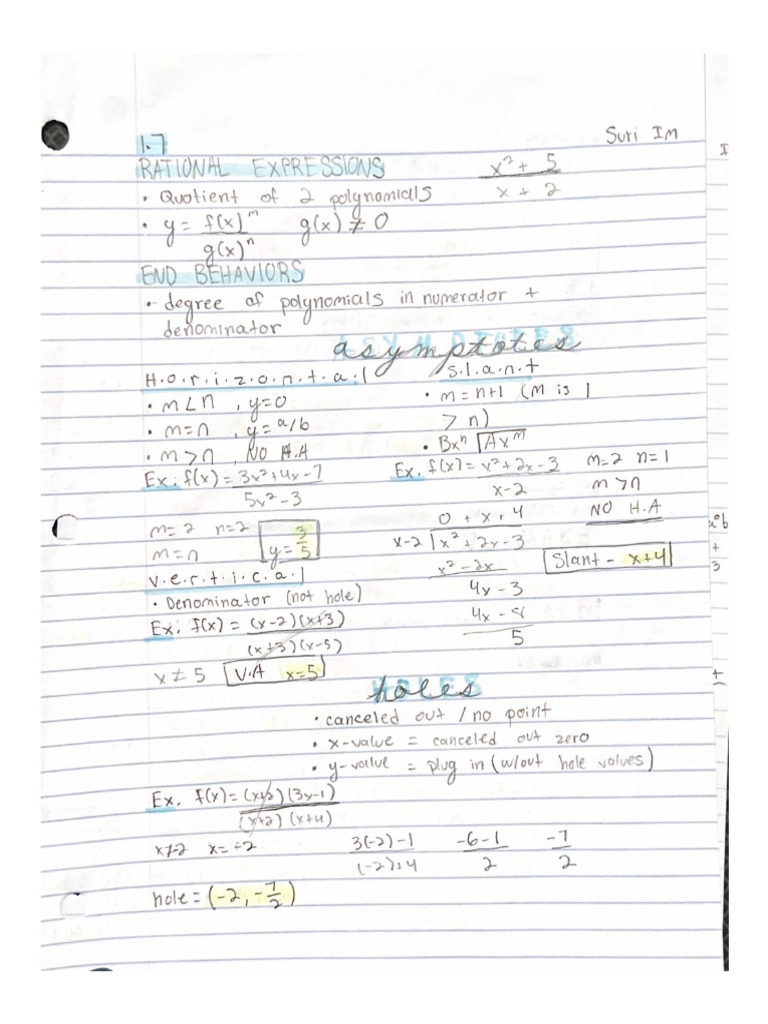 Suri Im
1.7
RATIONAL EXPRESSIONS
x² + 5
x + 2
• Quotient of 2 polynomials
• y = f(x)ᵐ g(x) ≠ 0
g(x)ⁿ
END BEHAVIORS
• degree of polynomials in numerator +
denominator
asymptotes
H.o.r.i.z.o.n.t.a.l
• m<n , y=0
• m=n , y=a/b
• m>n , NO H.A
Ex: f(x) = 3x²+4x-7
5x²-3
m=2 n=2
m=n
y = 3/5
s.l.a.n.t
• m=n+1 (m is 1
> n)
• Bxⁿ Axᵐ
Ex. f(x) = x²+2x-3 m=2 n=1
x-2 m>n
NO H.A
0 + x + 4
x-2 x²+2x-3
x²-2x
4x-3
4x-8
5
Slant - x+4
v.e.r.t.i.c.a.l
• Denominator (not hole)
Ex: f(x) = (x-2)(x+3)
(x+3)(x-5)
x ≠ 5 V.A x=5
holes
• canceled out / no point
• x-value = canceled out zero
• y-value = plug in (w/out hole values)
Ex. f(x) = (x+2)(3x-1)
(x+2)(x+4)
x=-2 3(-2)-1 -6-1 -7
(-2)+4 2 2
hole = (-2, -7/2)